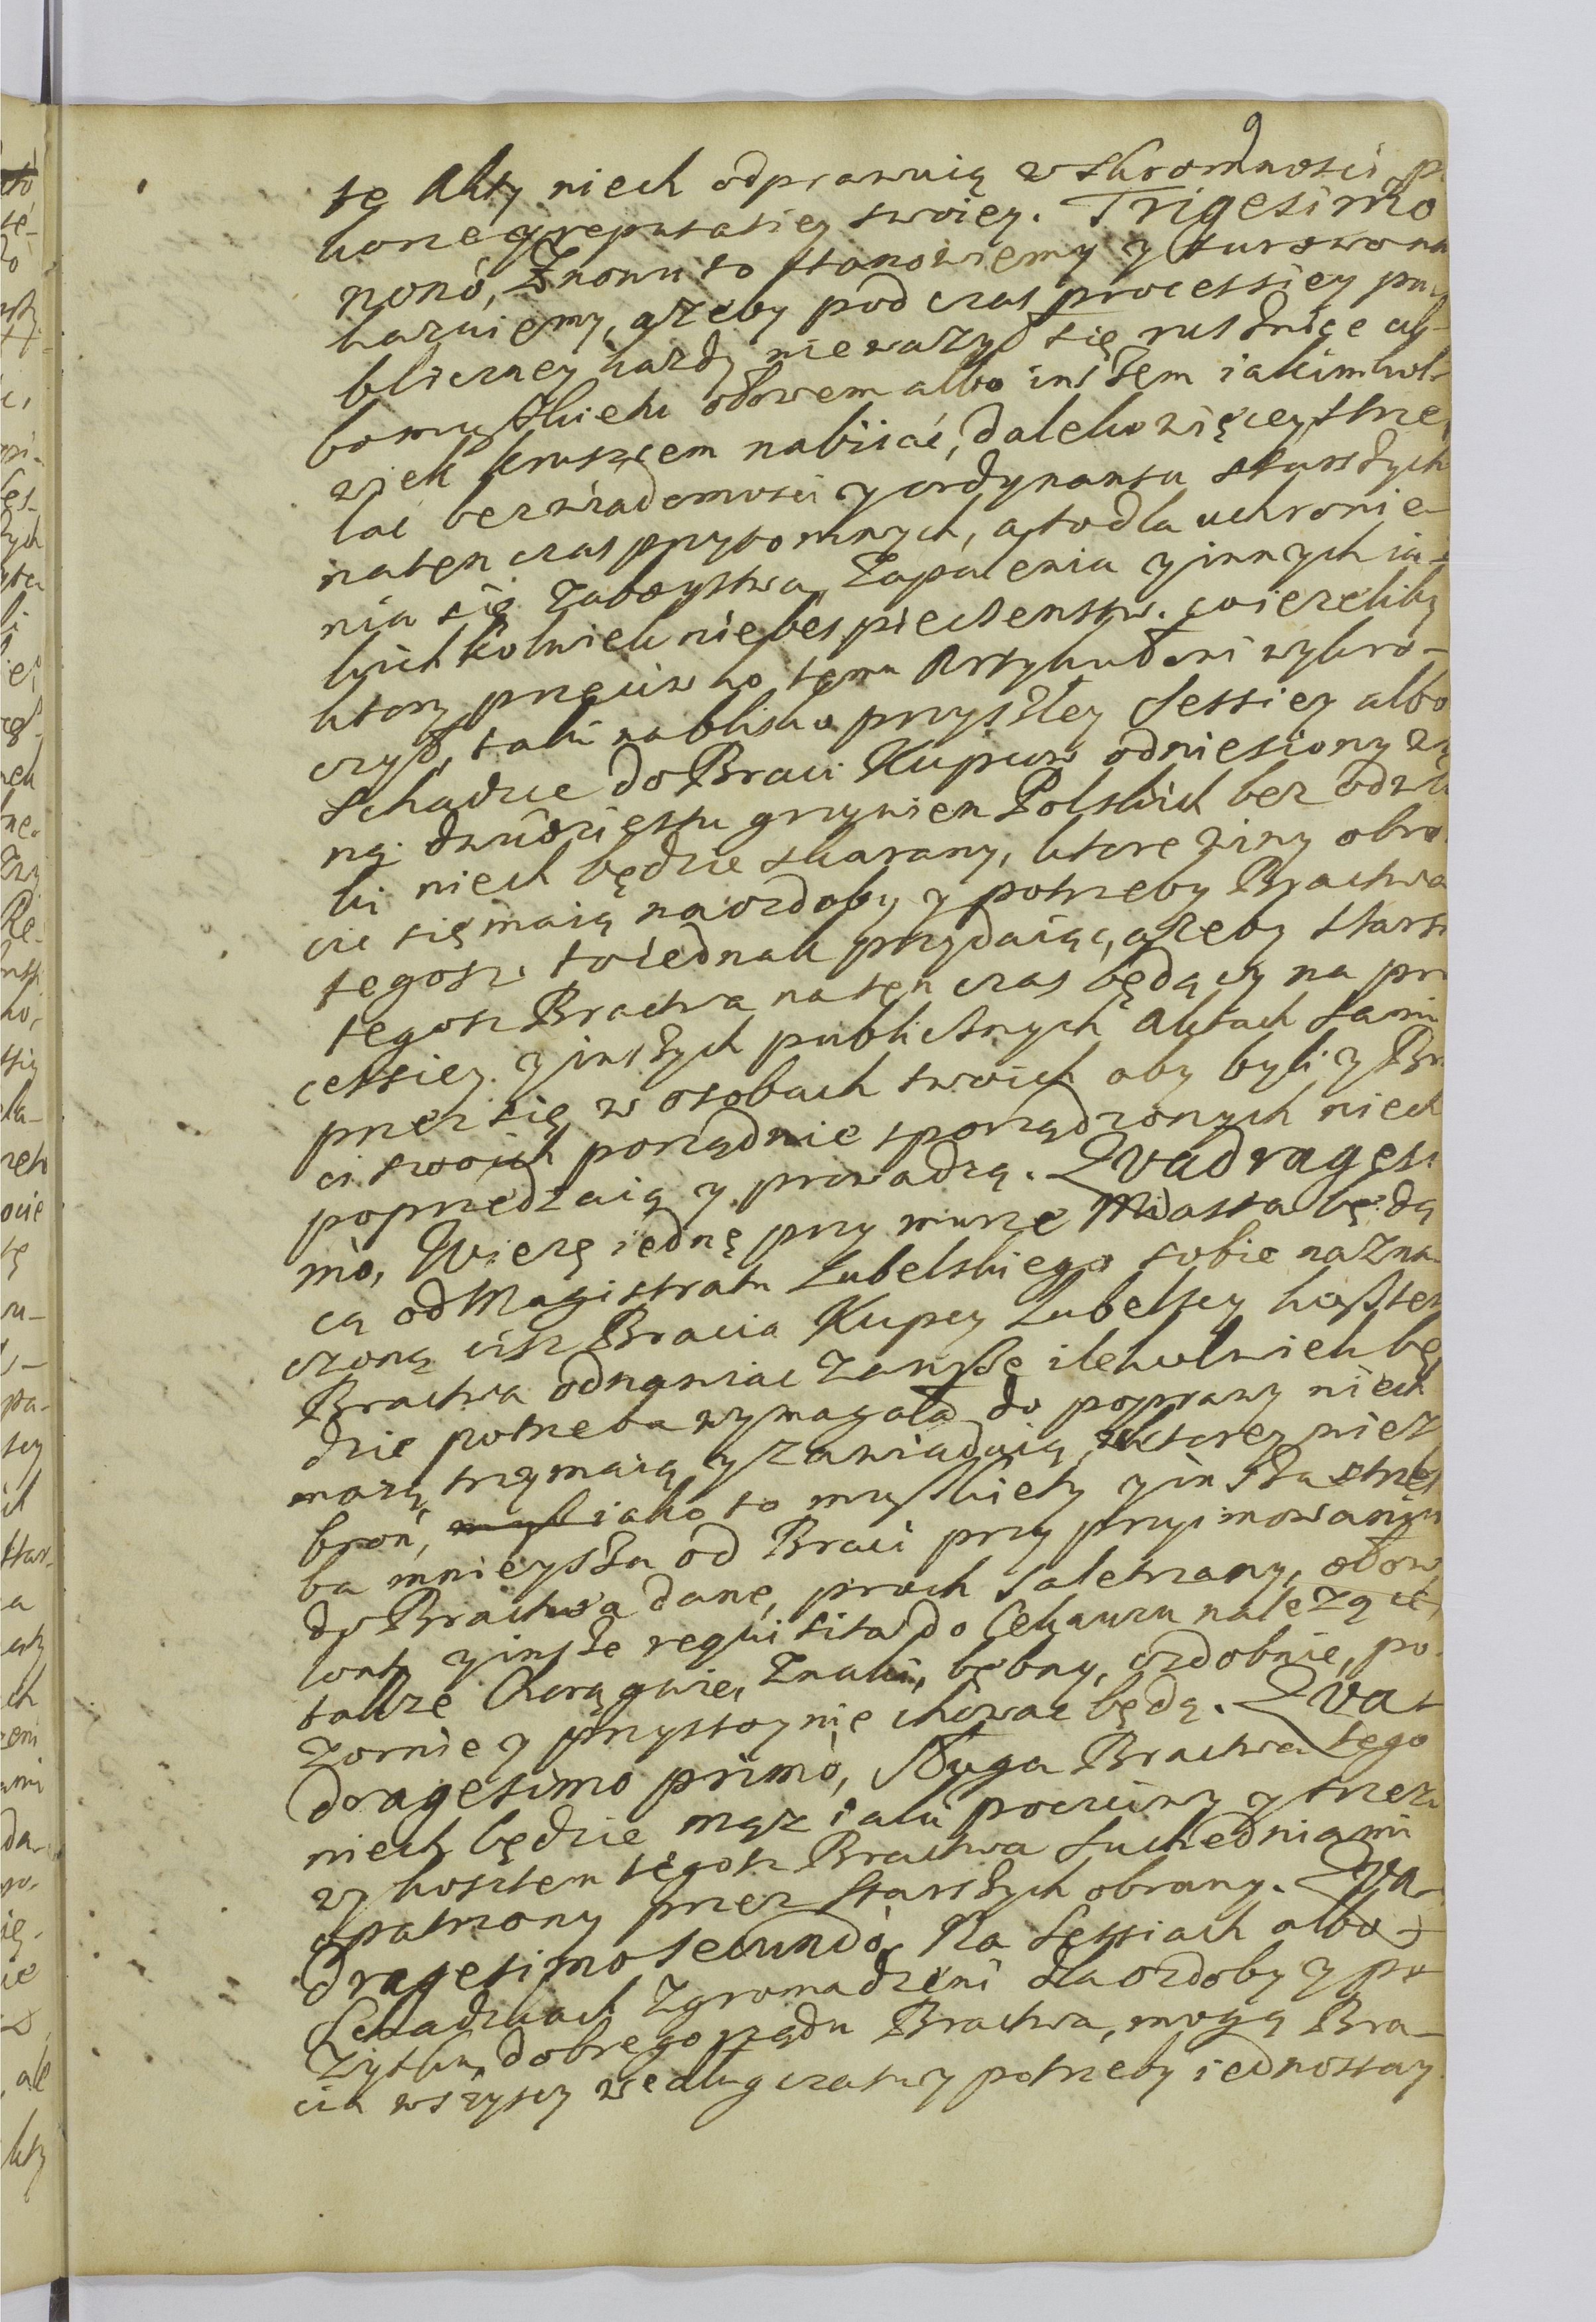 9
te Akty niech odprawuią w skromności p
honeg reputatiey swoiey. Trigesimo
nonó, Znowu to stanowiemy y surowo na
kazuiemy, ażeby pod czas processiey pu
bliczney każdy nieważył się rusznice al
bo muszkietu ołowem albo inszem iakimkol-
wiek kruszcem nabiiać, daleko więcey strze
lać bez wiadomości y ordynansu starszych
naten czas przytomnych, a to dla uchronie-
nia się zaboystwa, zapalenia y innych ia-
kichkolwiek niebespieczenstw. co ieżeliby
ktory przeciwko temu Artykułowi wykro-
czył, taki na blisko przyszłey Sessiey albo
Schadzce do Braci Kupcow odniesiony wi
ną dwudziestu grzywien Polskich bez odwło
ki niech będzie skarany, ktore winy obro
cic się maią na ozdoby y potrzeby Bractwa
tegosz. to iednak przydaiąc, ażeby starsi
tegosz Bractwa naten czas będący na pro
cessiey y inszych publicznych Aktach sami
przez się w osobach swoich aby byli y Bra
ci swoich porządnie sporządzonych niech
poprzedzaią y prowadzą. Quadragesi
mò, Wieżę iednę przy murze Miasta będą
cą od Magistratu Lubelskiego sobie nazna
czoną cisz Bracia Kupcy Lubelscy kosztem
Bractwa odnawiac zawsze ilekolwiek bę
dzie potrzeba wymagała do poprawy niech
maią trzymaią y zawiaduią, w ktorey wież
broń, iako to muszkiety y insza strzel
ba mnieysza od Braci przy przyimowaniu
do Bractwa dane, proch saletrzany, ołow,
lonty y insze requisita do Cekauzu należące,
także Chorągwie, Znaki, bębny, ozdobnie, po
zornie y przystoynie chowac będą. Qva
dragesimo primò, Sługa Bractwa tego
niech będzie mąż iaki poczciwy y trzez
wy kosztem tegosz Bractwa suchedniami
opatrzony przez starszych obrany. Qva
dragesimo secundò, Na Sessiach albo
Schadzkach zgromadzeni dla ozdoby y po
żytku, dobrego rządu Bractwa, mogą Bra-
cia wszyscy według czasu y potrzeby iednostay